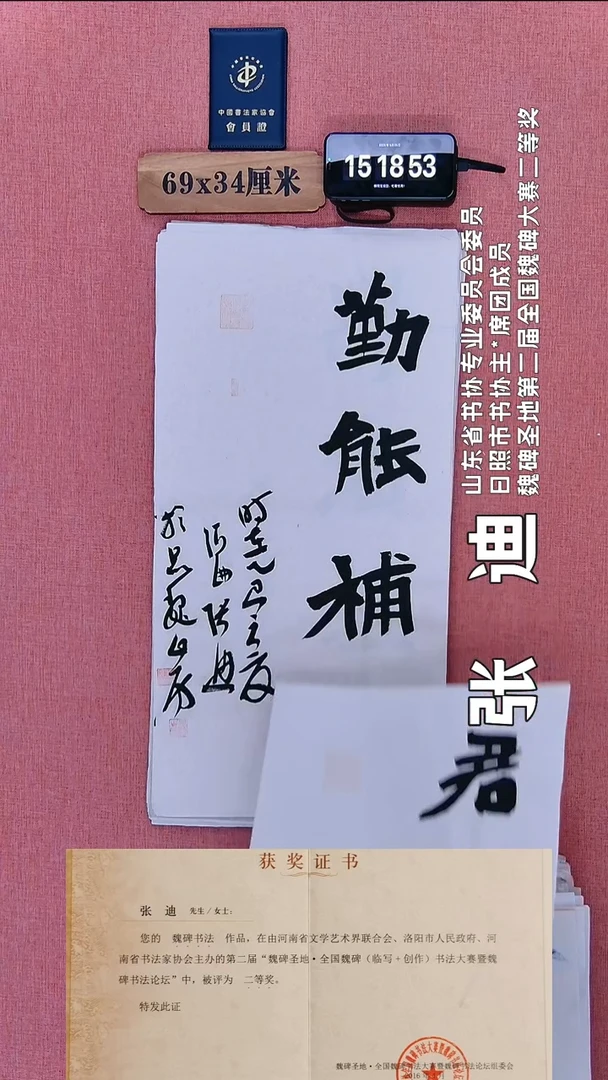 中國書法家協會
會員證
69x34厘米
15 18 53
勤能補
时在乙巳之夏
张迪
君
山东省书协专业委员会委员
日照市书协主*席团成员
魏碑圣地第二届全国魏碑大赛二等奖
张 迪
获奖证书
张 迪 先生/女士:
您的 魏碑书法 作品,在由河南省文学艺术界联合会、洛阳市人民政府、河
南省书法家协会主办的第二届“魏碑圣地·全国魏碑(临写+创作)书法大赛暨魏
碑书法论坛”中,被评为 二等奖。
特发此证
魏碑圣地·全国魏碑书法大赛暨魏碑书法论坛组委会